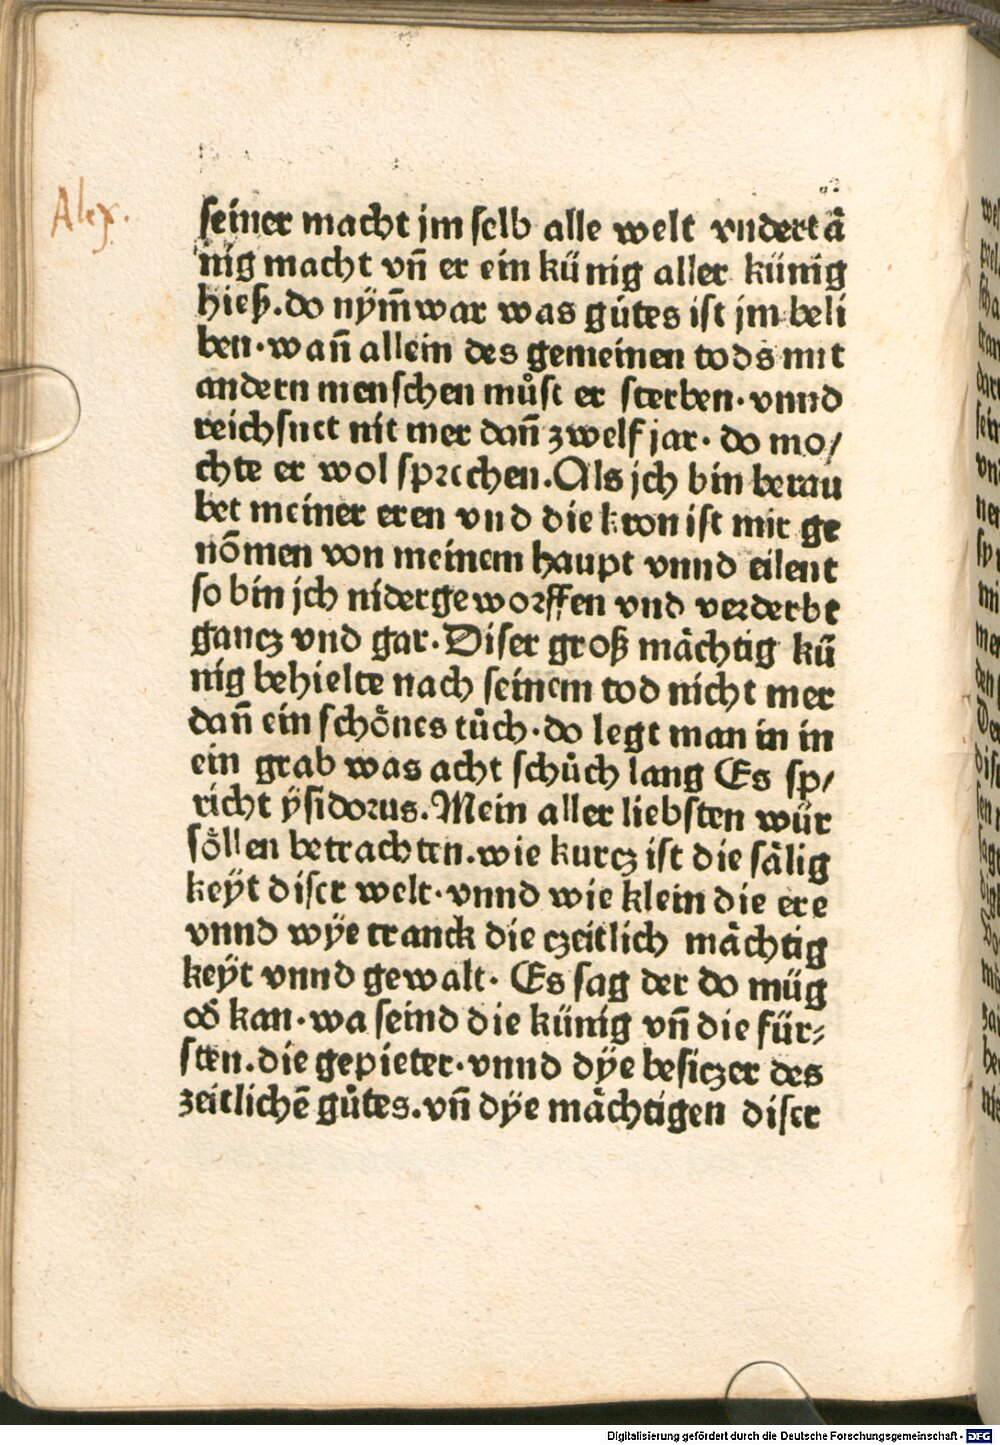 Alex.
seiner macht jm selb alle welt vndertå
nig macht vn̄ er ein künig aller künig
hieß.do nÿm̄war was gůtes ist jm beli
ben·wan̄ allein des gemeinen tods mit
andern menschen můst er sterben·vnnd
reichsnet nit mer dan̄ zwelf jar· do mo/
chte er wol sprechen.Als jch bin berau
bet meiner eren vnd die kron ist mir ge
nōmen von meinem haupt vnnd eilent
so bin jch nidergeworffen vnd verderbt
gancz vnd gar·Diser groß måchtig kü
nig behielte nach seinem tod nicht mer
dan̄ ein schönes tůch·do legt man in in
ein grab was acht schůch lang Es sp/
richt ÿsidorus.Mein aller liebsten wür
söllen betrachten.wie kurcz ist die sålig
keÿt diser welt·vnnd wie klein die ere
vnnd wÿe cranck die czeitlich måchtig
keÿt vnnd gewalt· Es sag der do müg
od̄ kan·wa seind die künig vn̄ die für⸗
sten.die gepieter·vnnd dÿe besiczer des
zeitlichē gůtes.vn̄ dÿe måchtigen diser
Digitalisierung gefördert durch die Deutsche Forschungsgemeinschaft - DFG